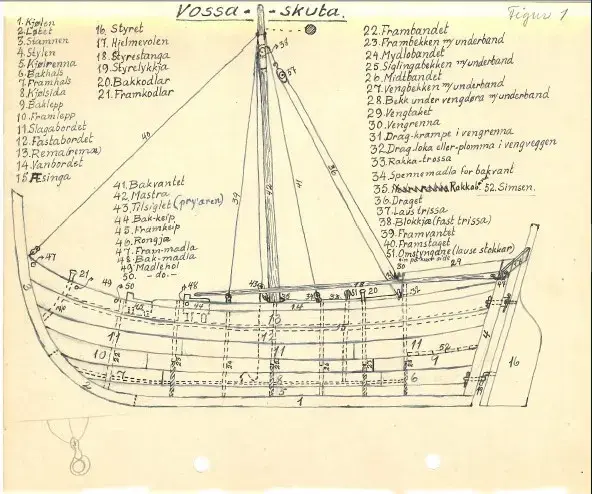 Vossa-skuta.
Figur 1
1. Kjølen
2. Løtet
3. Stamnen
4. Stylen
5. Kjølrenna
6. Bakhals
7. Framhals
8. Kjølsida
9. Baklepp
10. Framlepp
11. Slagabordet
12. Fastabordet
13. Rema (remæ)
14. Vanbordet
15. Æsinga
16. Styret
17. Hjelmevolen
18. Styrestanga
19. Styrelykkja
20. Bakkodlar
21. Framkodlar
22. Frambandet
23. Frambekken m/underband
24. Mydlobandet
25. Siglingabekken m/underband
26. Midtbandet
27. Vengbekken m/underband
28. Bekk under vengdøra m/underband
29. Vengtaket
30. Vengrenna
31. Drag-krampe i vengrenna
32. Drag-loka eller-plomma i vengveggen
33. Rakka-trossa
34. Spennemadla for bakvant
35. Rakka 52. Simsen.
36. Draget
37. Laus trissa
38. Blokkjæ (fast trissa)
39. Framvantet
40. Framstaget
51. Omstyngdne (lause stokkar)
41. Bakvantet
42. Mastra
43. Tilsiglet (pryaren)
44. Bak-keip
45. Framkeip
46. Rongjæ
47. Fram-madla
48. Bak-madla
49. Madlehol
50. - do. -